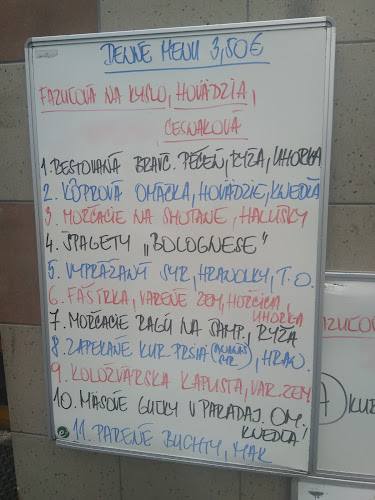 DENNÉ MENU 3,50€
FAZUĽOVÁ NA KYSLO, HOVÄDZIA,
CESNAKOVÁ
1. RESTOVANÁ BRAVČ. PEČEŇ, RYŽA, UHORKA
2. KÔPROVÁ OMÁČKA, HOVÄDZIE, KNEDĽA
3. MORČACIE NA SMOTANE, HALUŠKY
4. ŠPAGETY „BOLOGNESE"
5. VYPRÁŽANÝ SYR, HRANOLKY, T.O.
6. FAŠÍRKA, VARENÉ ZEM, HORČICA,
UHORKA
7. MORČACIE RAGÚ NA ŠAMP., RYŽA
8. ZAPEKANÉ KUR. PRSIA SYR, HRAN.
9. KOLOŽVÁRSKA KAPUSTA, VAR. ZEM
10. MÄSOVÉ GUĽKY V PARADAJ. OM.
KNEDĽA!
11. PARENÉ BUCHTY, MAK
FAZUĽOV
KUR